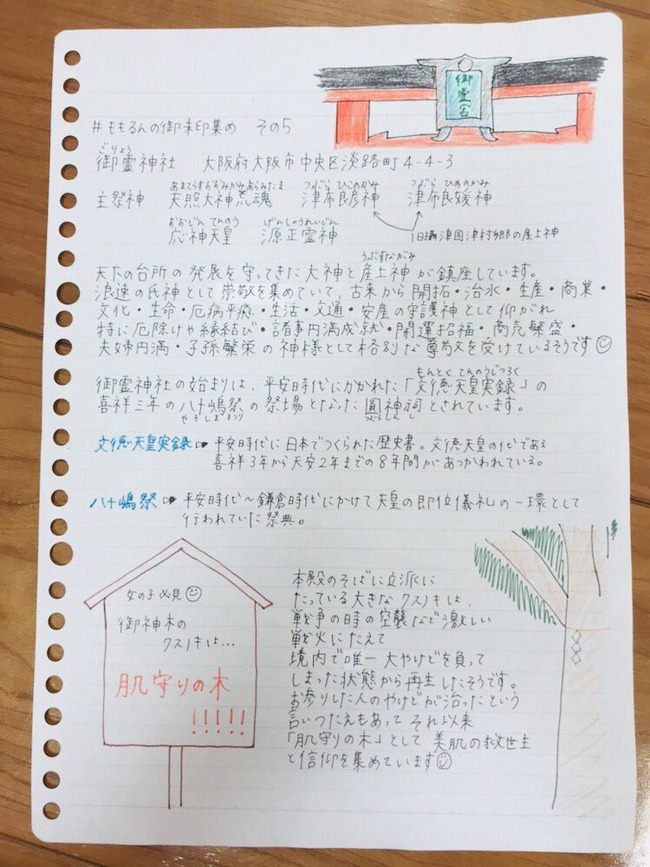 御霊宮
#ももるんの御朱印集め その5
ごりょう
御霊神社 大阪府大阪市中央区淡路町4-4-3
あまてらすおおみかみあらみたま つぶらひこのかみ つぶらひめのかみ
主祭神 天照大神荒魂 津布良彦神 津布良媛神
おおじんてんのう げんしょうれいじん
応神天皇 源正霊神 旧攝津国津村郷の産土神
うぶすながみ
天下の台所の発展を守ってきた大神と産土神が鎮座しています。
浪速の氏神として崇敬を集めていて、古来から開拓・治水・生産・商業・
文化・生命・厄病平癒・生活・交通・安産の守護神として仰がれ
特に厄除けや縁結び・諸事円満成就・開運招福・商売繁盛・
夫婦円満・子孫繁栄の神様として格別な尊敬を受けているそうです
もんとくてんのうじつろく
御霊神社の始まりは、平安時代にかかれた「文徳天皇実録」の
喜祥三年の八十嶋祭の祭場となった圓神祠とされています。
やそしままつり つぶらしんし
文徳天皇実録 平安時代に日本でつくられた歴史書。文徳天皇の代である
喜祥3年から天安2年までの8年間があつかわれている。
八十嶋祭 平安時代~鎌倉時代にかけて天皇の即位儀礼の一環として
行われていた祭典。
女の子必見
御神木の
クスノキは…
肌守りの木
!!!!!
本殿のそばに立派に
たっている大きなクスノキは、
戦争の時の空襲など激しい
戦火にたえて
境内で唯一大やけどを負って
しまった状態から再生したそうです。
お参りした人のやけどが治ったという
言いつたえもあって それ以来
「肌守りの木」として 美肌の救世主
と信仰を集めています